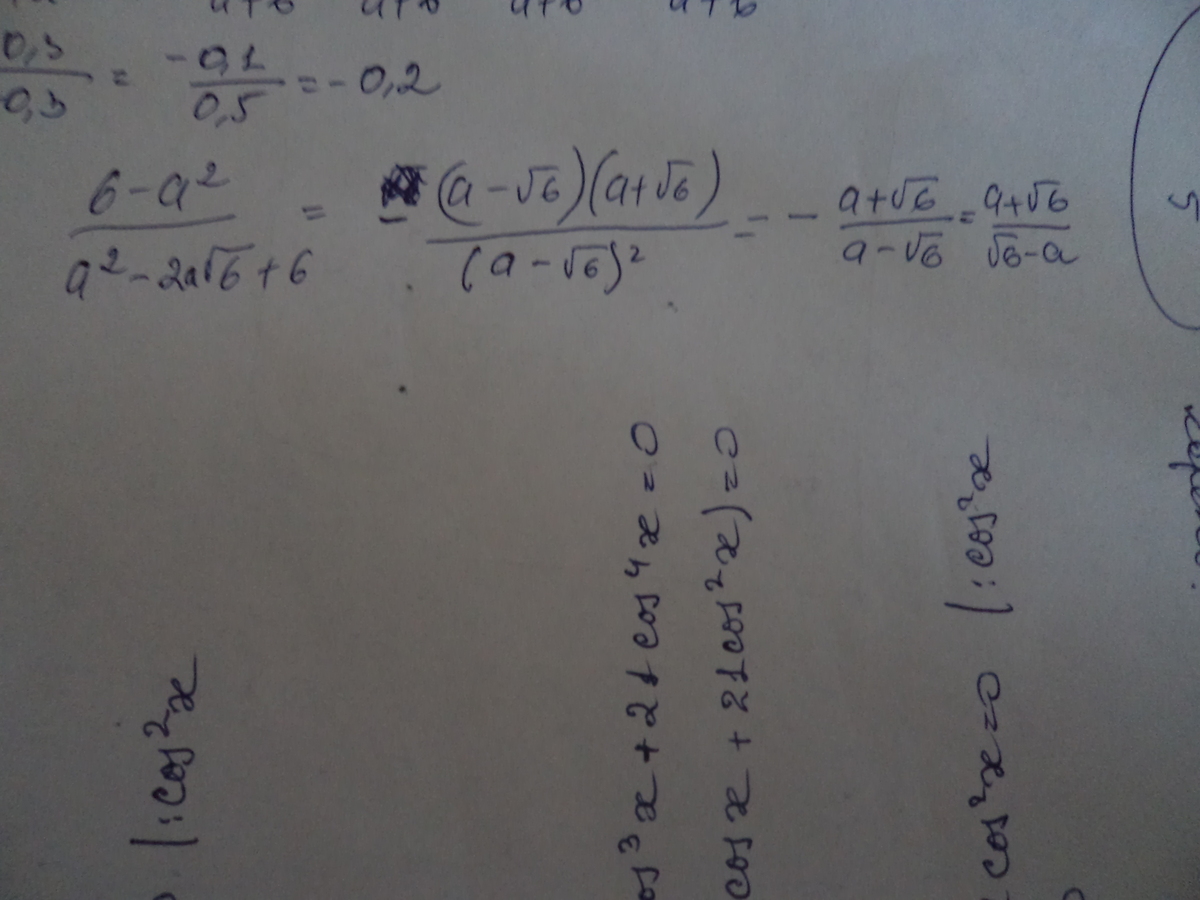 a+b a+b a+b a+b
0,3/0,3 = -0,1/0,5 = -0,2
6-a²/a²-2a√6+6 = -(a-√6)(a+√6)/(a-√6)² = -a+√6/a-√6 = a+√6/√6-a
|:cos²x
os³x+21cos⁴x=0
cosx+21cos²x)=0
cos²x=0 |:cos²x
5